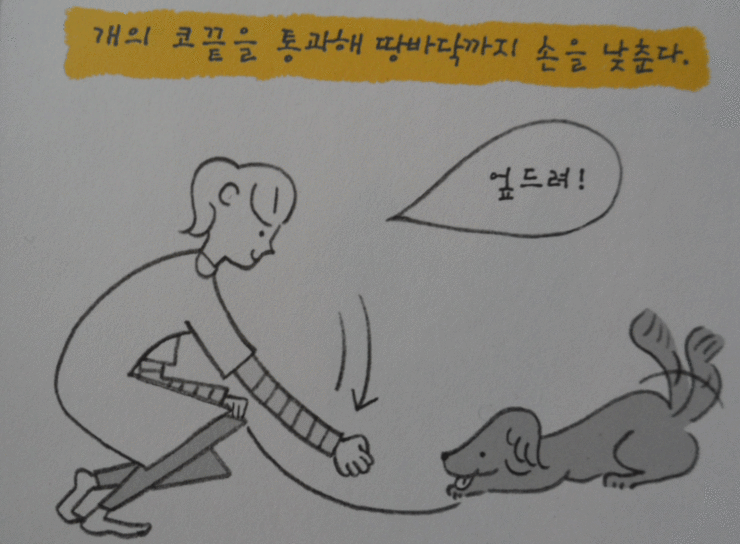 개의 코끝을 통과해 땅바닥까지 손을 낮춘다.
엎드려!